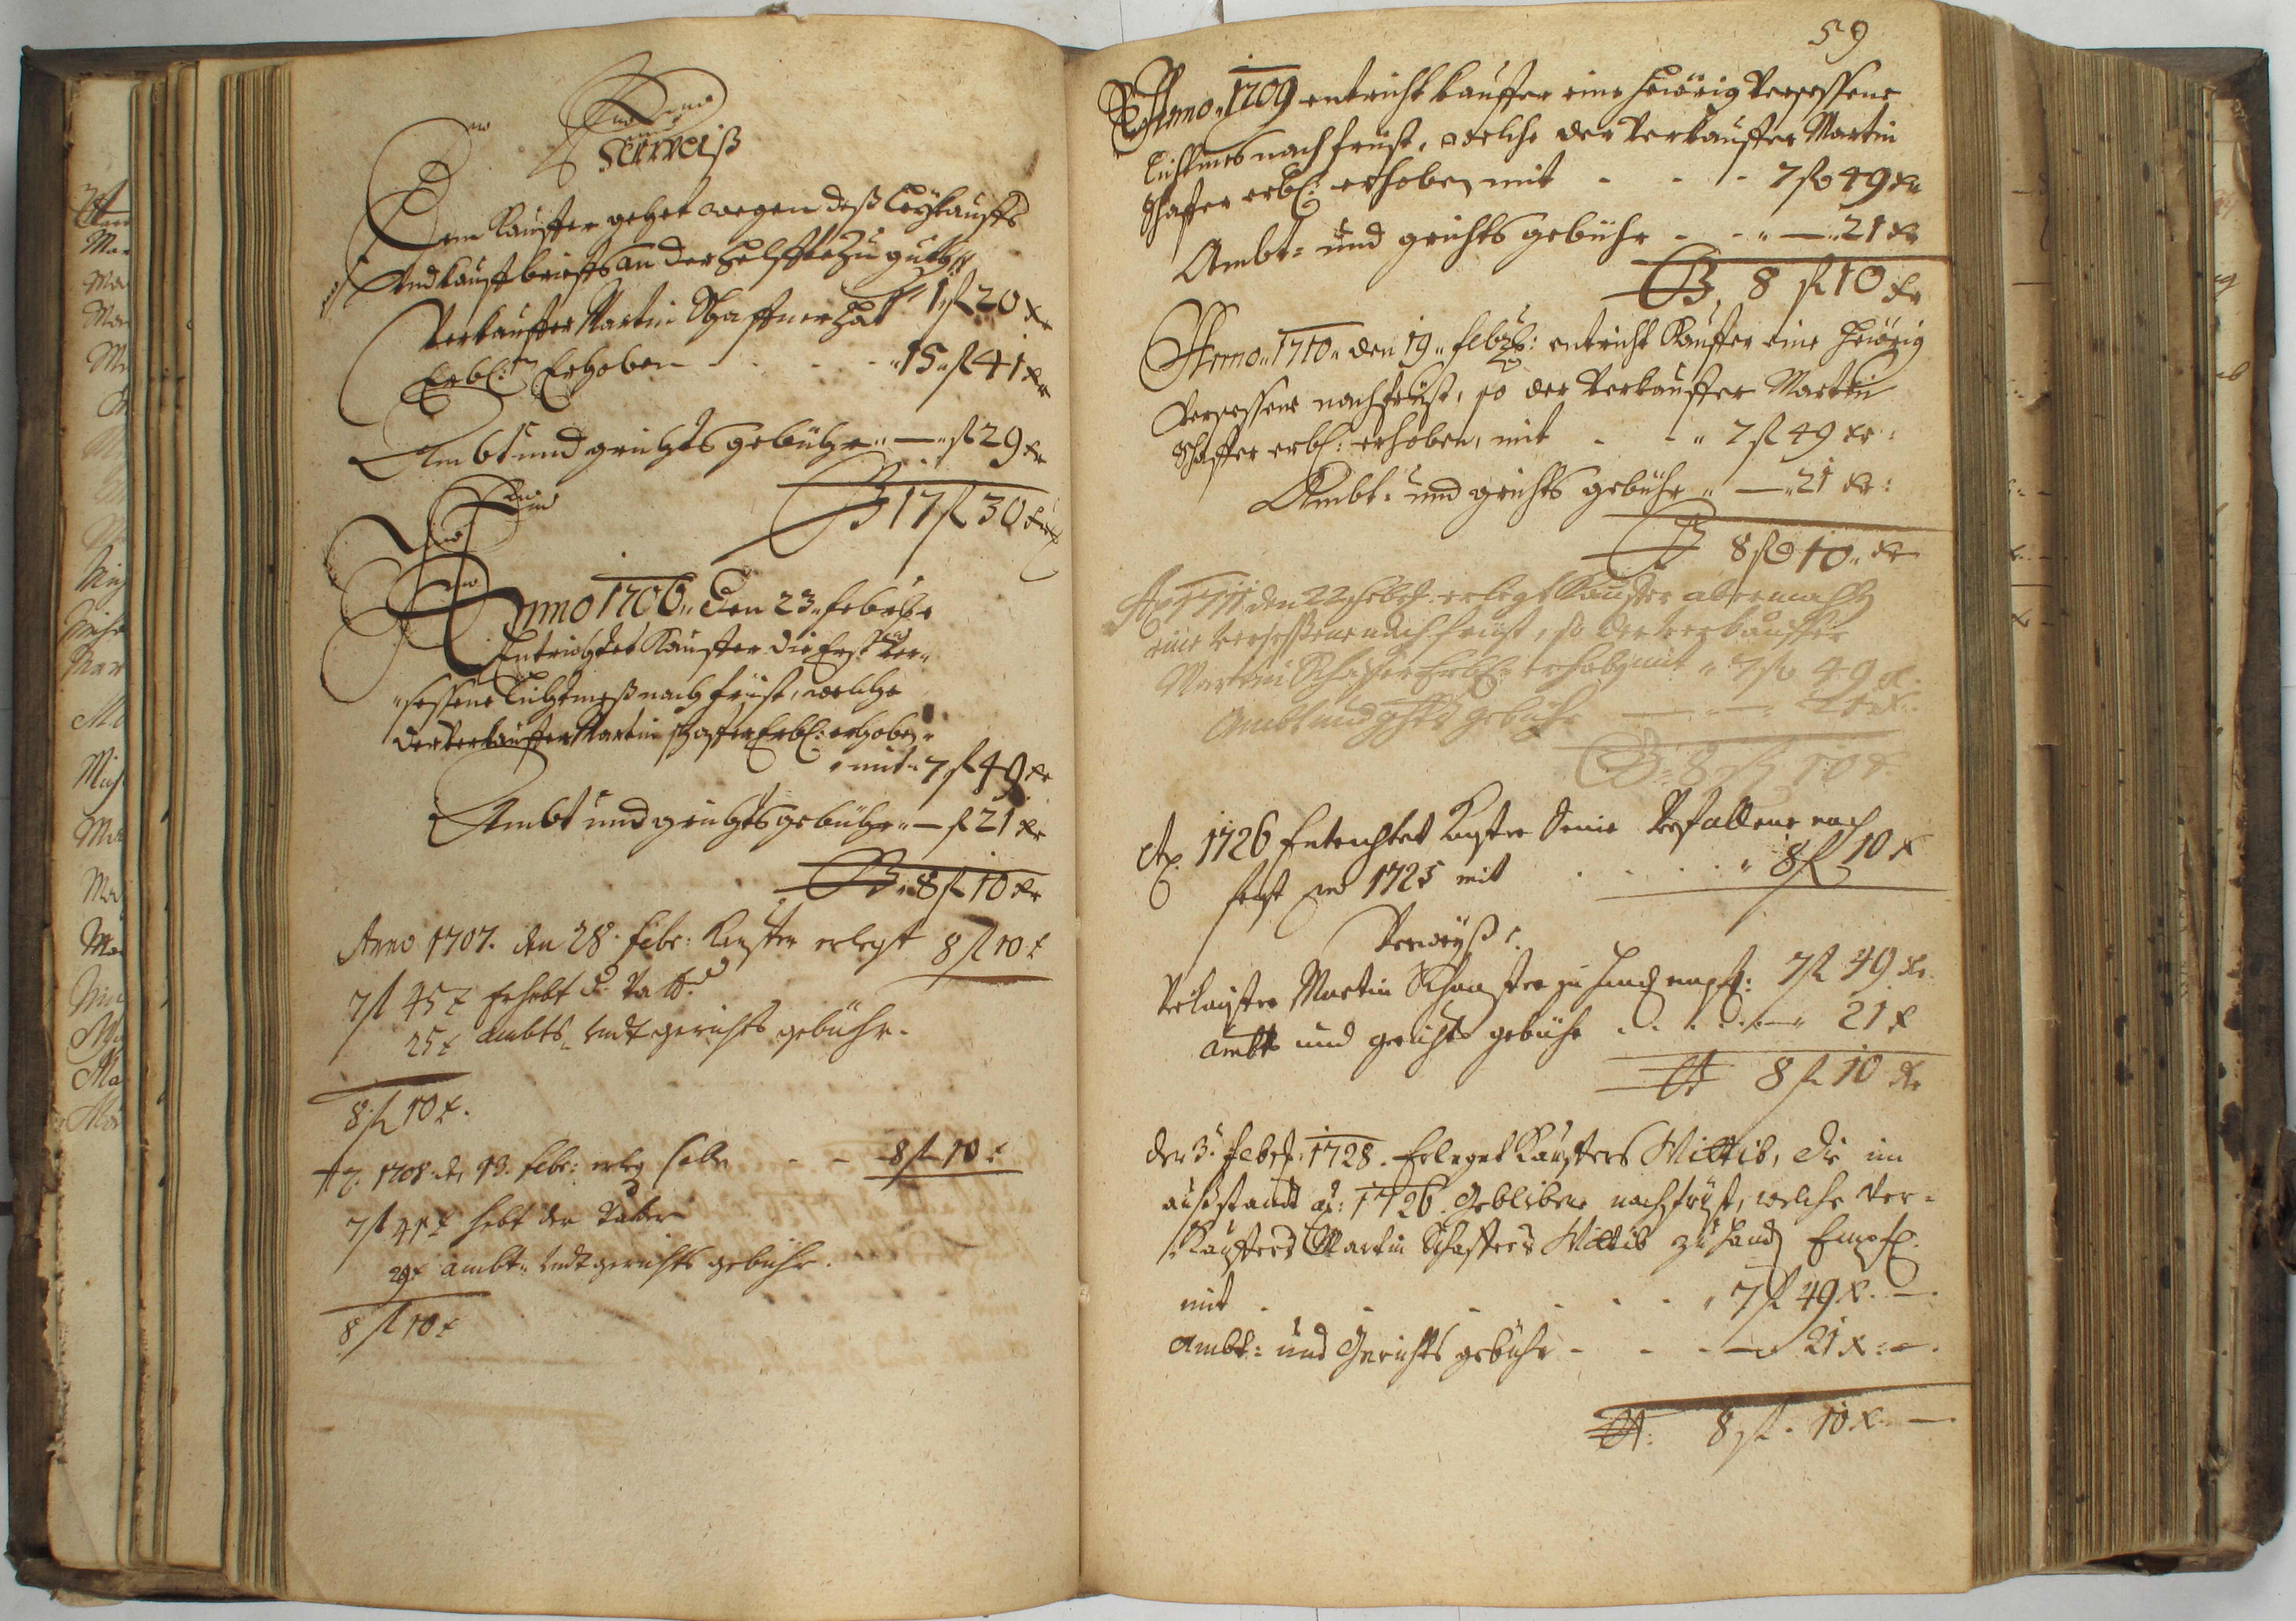 Verweiß
Dem Kauffer gehet wegen deß Leykauffs
Vnd kauffbrieffs an der helffte zu guthen
1 fl 20 xr
Verkauffer Martin Schaffner hat
Erbl: Erhoben - - - 15 fl 41 xr
Ambt und grichts gebühr „ — „ fl 29 xr
17 fl 30 xr
Anno 1706 „ Den 23 „ Feb
Entrichtet Kauffer die Erst ver„
„sessene Liechtmeß nach frist, welche
der Verkauffer Martin Schaffer Erbl: erhoben„
„mit „ 7 fl 49 xr
Ambt und grichts gebühr „ — fl 21 xr
8 fl 10 xr
Anno 1707. den 28. Febr: Kauffer erlegt 8 fl 10 x
7 fl 45 x Erhebt d.
25 x ambts „ vndt gerichts gebühr.
8 fl 10 x.
1708 den 13. Febr: erleg - - 8 fl 10 x
7 fl 41 x hebt der
29 x ambt „ vndt gerichts gebühr.
8 fl 10 x
59
Anno „ 1709 entricht kauffer eine heürig Versessene
Lichtmes nachfrist, welche der Verkauffer Martin
Schaffer erbl: erhoben mit - - - 7 fl 49 xr
Ambt= und grichts gebühr - - „ — „ 21 xr
8 fl 10 xr
Anno „ 1710 „ den 19 „ feb: entricht Kauffer eine heürig
Versessene nachfrist, so der Verkauffer Martin
Schaffer erbl: erhoben, mit - - „ 7 fl 49 xr:
Ambt= und grichts gebühr „ — „ 21 xr:
8 fl 10 „ xr
Ao 1711 den 22 Febr. erlegt Kauffer abermahls
eine versessene nachfrist, so der verkauffer
Martin Schaffer Erbl: erhobt mit „ 7 fl 49 x.
Ambt und gebühr — „ — 21 x.
8 fl 10 x.
Ao. 1726 Entrichtet Kauffer Seine Verfallene nach
frist 1725 mit . . . . . „ 8 fl 10 x
Verweiß
Verkauffer Martin Schaffer zu Hand empf: 7 fl 49 xr.
Ambts und gerichts gebühr . . . . . — „ 21 x
8 fl 10 xr
Den 3. Feb. 1728. Erleget Kauffers Wittib, die im
ausstandt ao: 1726. geblibene nachfrist, welche Ver-
„kauffers Martin Schaffers Wittib zu Hand Empf.
mit - - - - - - - „ 7 fl 49 x. —.
Ambt= und Gerichts gebühr - - - — 21 x: —.
8 fl. 10 x. —.